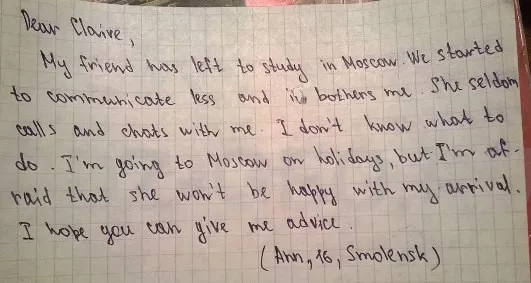 Dear Claire,
My friend has left to study in Moscow. We started
to communicate less and it bothers me. She seldom
calls and chats with me. I don't know what to
do. I'm going to Moscow on holidays, but I'm af-
raid that she won't be happy with my arrival.
I hope you can give me advice.
(Ann, 16, Smolensk)